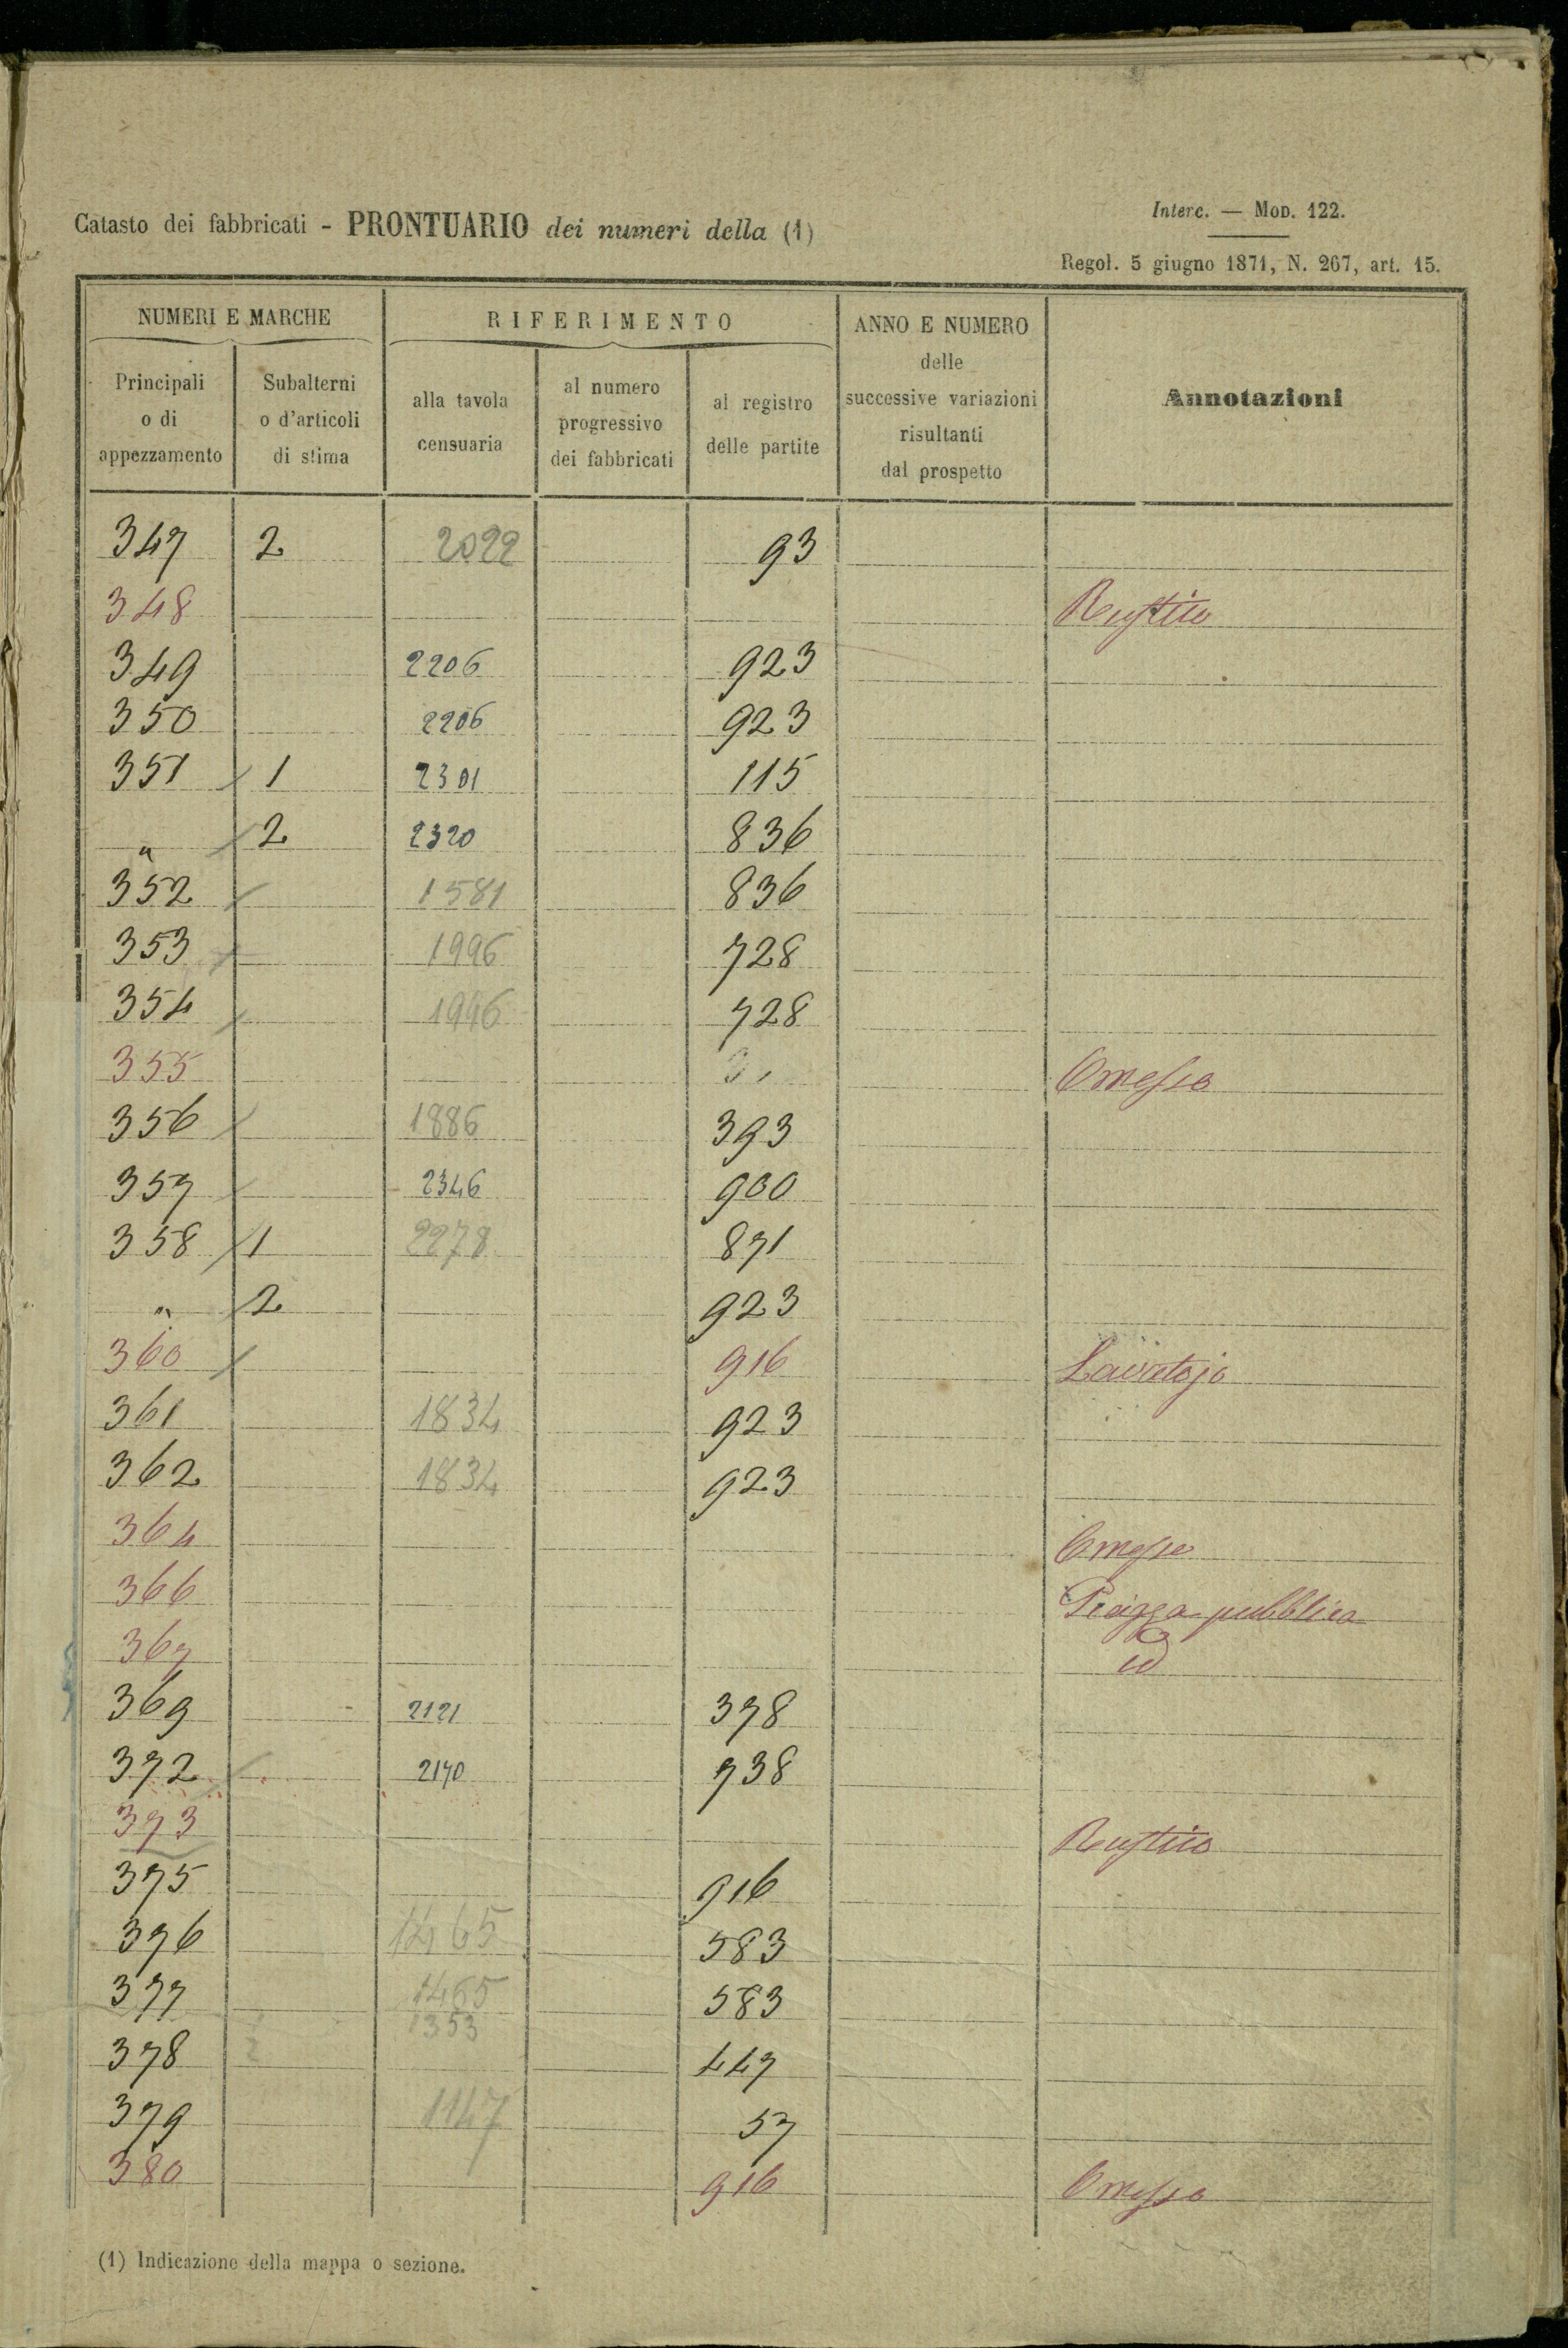 Catasto dei fabbricati - PRONTUARIO dei numeri della (1)
Interc. — MOD. 122.
Regol. 5 giugno 1871, N. 267, art. 15.
NUMERI E MARCHE
RIFERIMENTO
ANNO E NUMERO
delle
successive variazioni
risultanti
dal prospetto
Annotazioni
Principali
o di
appezzamento
Subalterni
o d'articoli
di stima
alla tavola
censuaria
al numero
progressivo
dei fabbricati
al registro
delle partite
347 2 2022 93
348 Rustico
349 2206 923
350 2206 923
351 1 2301 115
" 2 2320 836
352 1581 836
353 1996 728
354 1996 728
355 Omesso
356 1886 393
357 2346 900
358 1 2278 871
" 2 923
360 916 Lavatojo
361 1834 923
362 1834 923
364 Omesso
366 Piazza pubblica
367 id
369 2121 378
372 2170 738
373 Rustico
375 916
376 1465 583
377 1465 583
1353
378 2 447
379 1147 57
380 916 Omesso
(1) Indicazione della mappa o sezione.